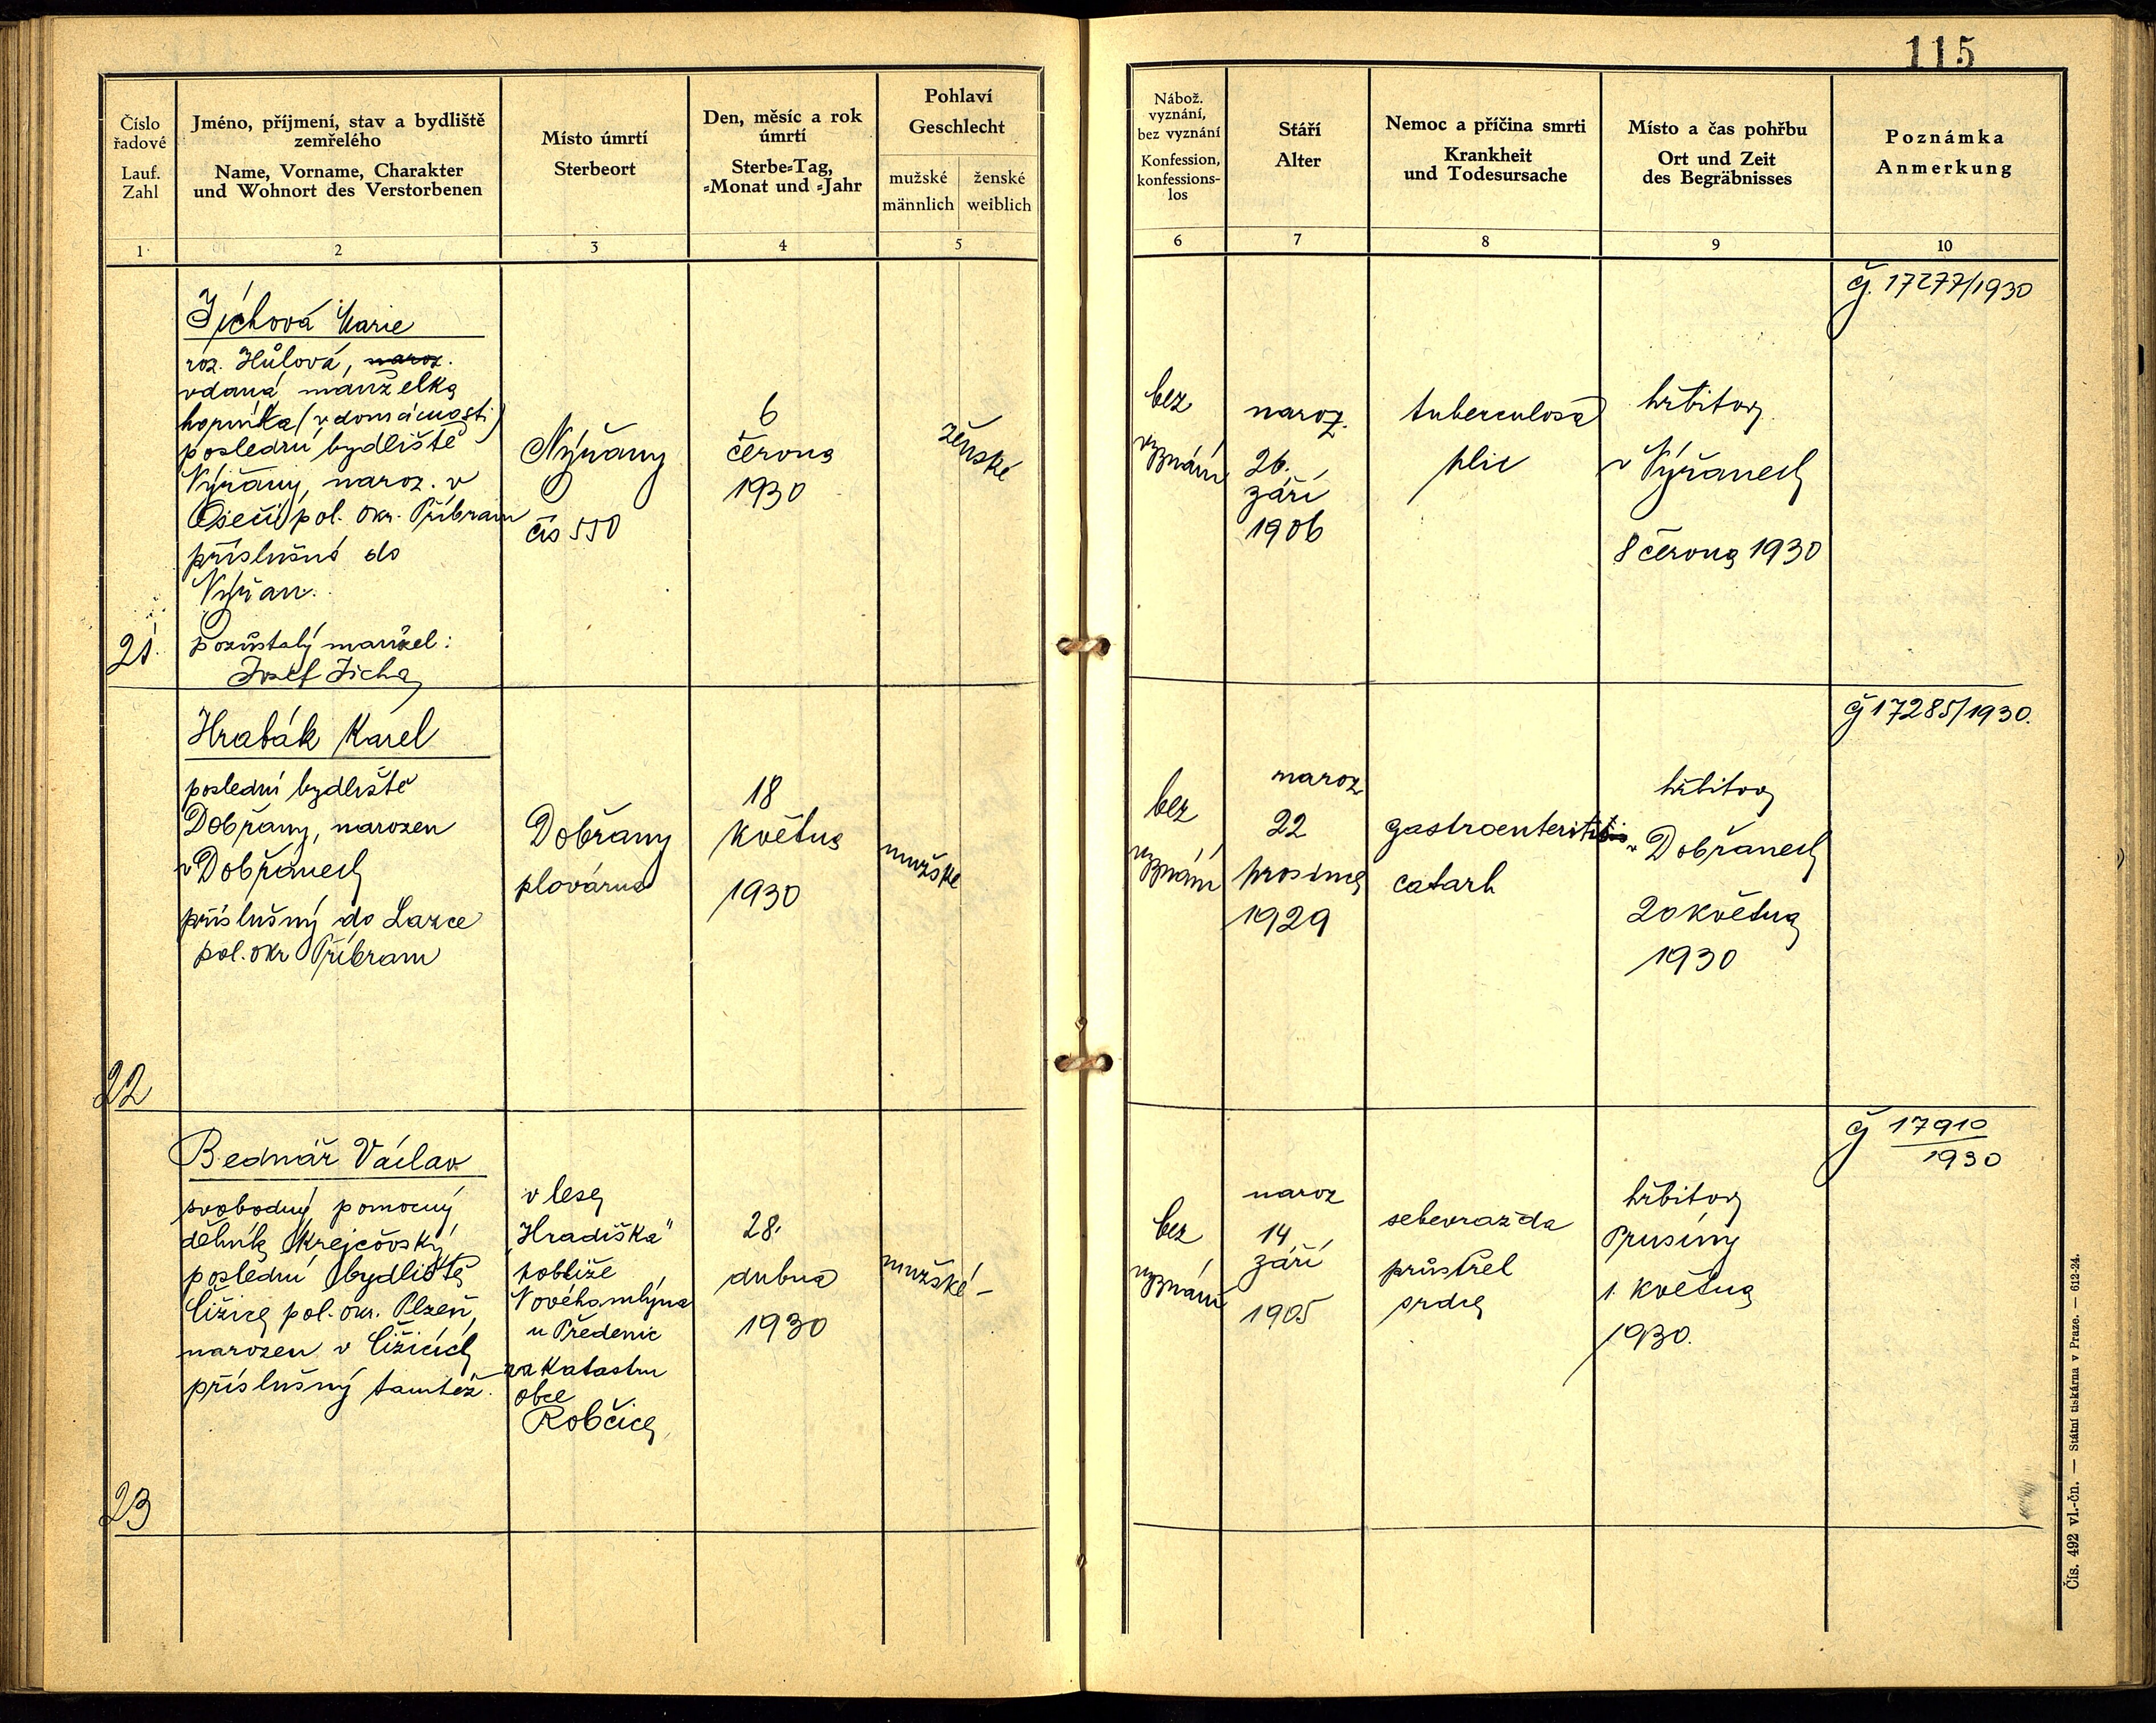 115
Číslo
řadové
Lauf.
Zahl
Jméno, příjmení, stav a bydliště
zemřelého
Name, Vorname, Charakter
und Wohnort des Verstorbenen
Místo úmrtí
Sterbeort
Den, měsíc a rok
úmrtí
Sterbe-Tag,
-Monat und -Jahr
Pohlaví
Geschlecht
mužské
männlich
ženské
weiblich
Nábož.
vyznání,
bez vyznání
Konfession,
konfessions-
los
Stáří
Alter
Nemoc a příčina smrti
Krankheit
und Todesursache
Místo a čas pohřbu
Ort und Zeit
des Begräbnisses
Poznámka
Anmerkung
1
2
3
4
5
6
7
8
9
10
21.
Jíchová Marie
roz. Hůlová, naroz.
vdaná, manželka
horníka (v domácnosti)
poslední bydliště
Nýřany, naroz. v
Oseči, pol. okr. Příbram
příslušná do
Nýřan.
pozůstalý manžel:
Josef Jícha
Nýřany
čís 550
6
června
1930
ženské
bez
vyznání
naroz.
26.
září
1906
tuberculosa
plic
hřbitov
v Nýřanech
8 června 1930
čj. 17277/1930
22
Hrabák Karel
poslední bydliště
Dobřany, narozen
v Dobřanech
příslušný do Lazce
pol. okr Příbram
Dobřany
plovárna
18
května
1930
mužské
bez
vyznání
naroz
22
prosince
1929
gastroenteriti
catarh
hřbitov
v Dobřanech
20 května
1930
čj 17285/1930.
23
Bednář Václav
svobodný pomocný
dělník krejčovský,
poslední bydliště
Čižice pol. okr. Plzeň,
narozen v Čižicích
příslušný tamtéž.
v lese
„Hradiška"
poblíže
Nového mlýna
u Předenic
na katastru
obce
Robčice
28.
dubna
1930
mužské -
bez
vyznání
naroz
14
září
1905
sebevražda
průstřel
srdce
hřbitov
Prusiny
1. května
1930.
čj 17910
1930
Čís. 492 vl.-čn. — Státní tiskárna v Praze. — 612-24.